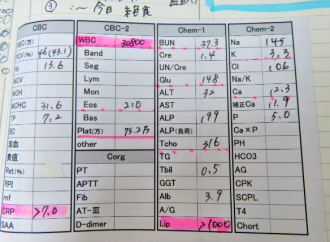 ④ :〜 今日 絶食
CBC CBC-2 Chem-1 Chem-2
RBC(万) WBC 30800 BUN 37.3 Na 145
PCV(%) 46(43.1) Band Cre 1.4 K 3.3
Hb 13.6 Seg UN/Cre Cl 106
MCV Lym Glu 148 Na/K
MCH Mon ALT 32 Ca 12.3
MCHC 31.6 Eos 210 AST 補正Ca 11.9
TP 7.2 Bas ALP 199 P 5.0
BC Plat(万) 75.2万 ALP(負荷) Ca×P
溶血 other Tcho 316 PH
黄疸 Corg TG HCO3
Ret(%) PT Tbil 0.5 AG
RPI APTT GGT CPK
mf Fib Alb 3.9 SCPL
CRP >7.0 AT-III A/G T4
SAA D-dimer Lip >1000 Chort